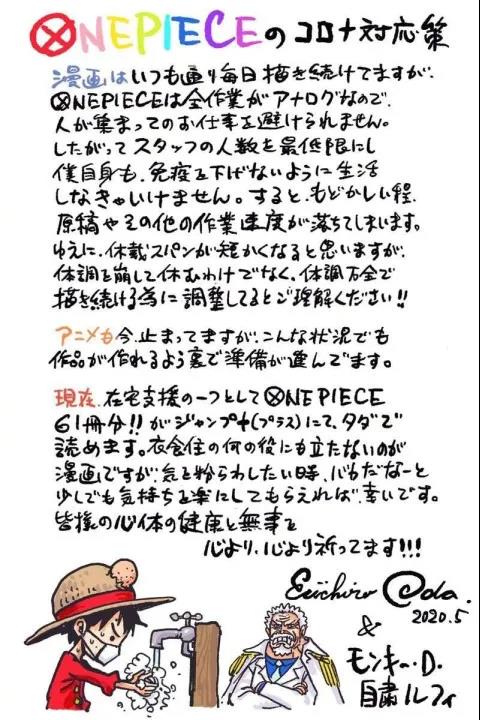 ⓍNEPIECEのコロナ対応策
漫画はいつも通り毎日描き続けてますが、
ⓍNEPIECEは全作業がアナログなので、
人が集まってのお仕事を避けられません。
したがってスタッフの人数を最低限にし
僕自身も、免疫を下げないように生活
しなきゃいけません。すると、もどかしい程、
原稿やその他の作業速度が落ちてしまいます。
ゆえに、休載スパンが短かくなると思いますが、
体調を崩して休むわけでなく、体調万全で
描き続ける為に調整してるとご理解ください!!
アニメも今、止まってますが、こんな状況でも
作品が作れるよう裏で準備が進んでます。
現在、在宅支援の一つとしてⓍNEPIECE
61冊分!!がジャンプ+(プラス)にて、タダで
読めます。衣食住の何の役にも立たないのが
漫画ですが、気を紛らわしたい時、バカだなーと
少しでも気持ちを楽にしてもらえれば幸いです。
皆様の心体の健康と無事を
心より、心より祈ってます!!!
Eiichiro Oda.
2020.5
&
モンキー・D・
自粛ルフィ